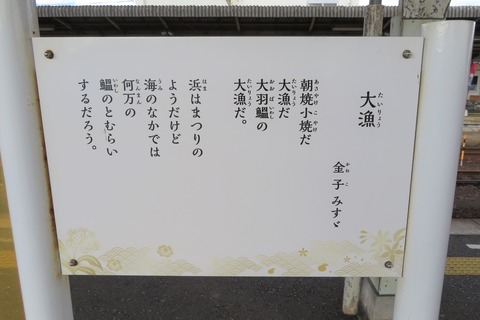 大漁
金子みすゞ
朝焼小焼だ
大漁だ
大羽鰮の
大漁だ。
浜はまつりの
ようだけど
海のなかでは
何万の
鰮のとむらい
するだろう。